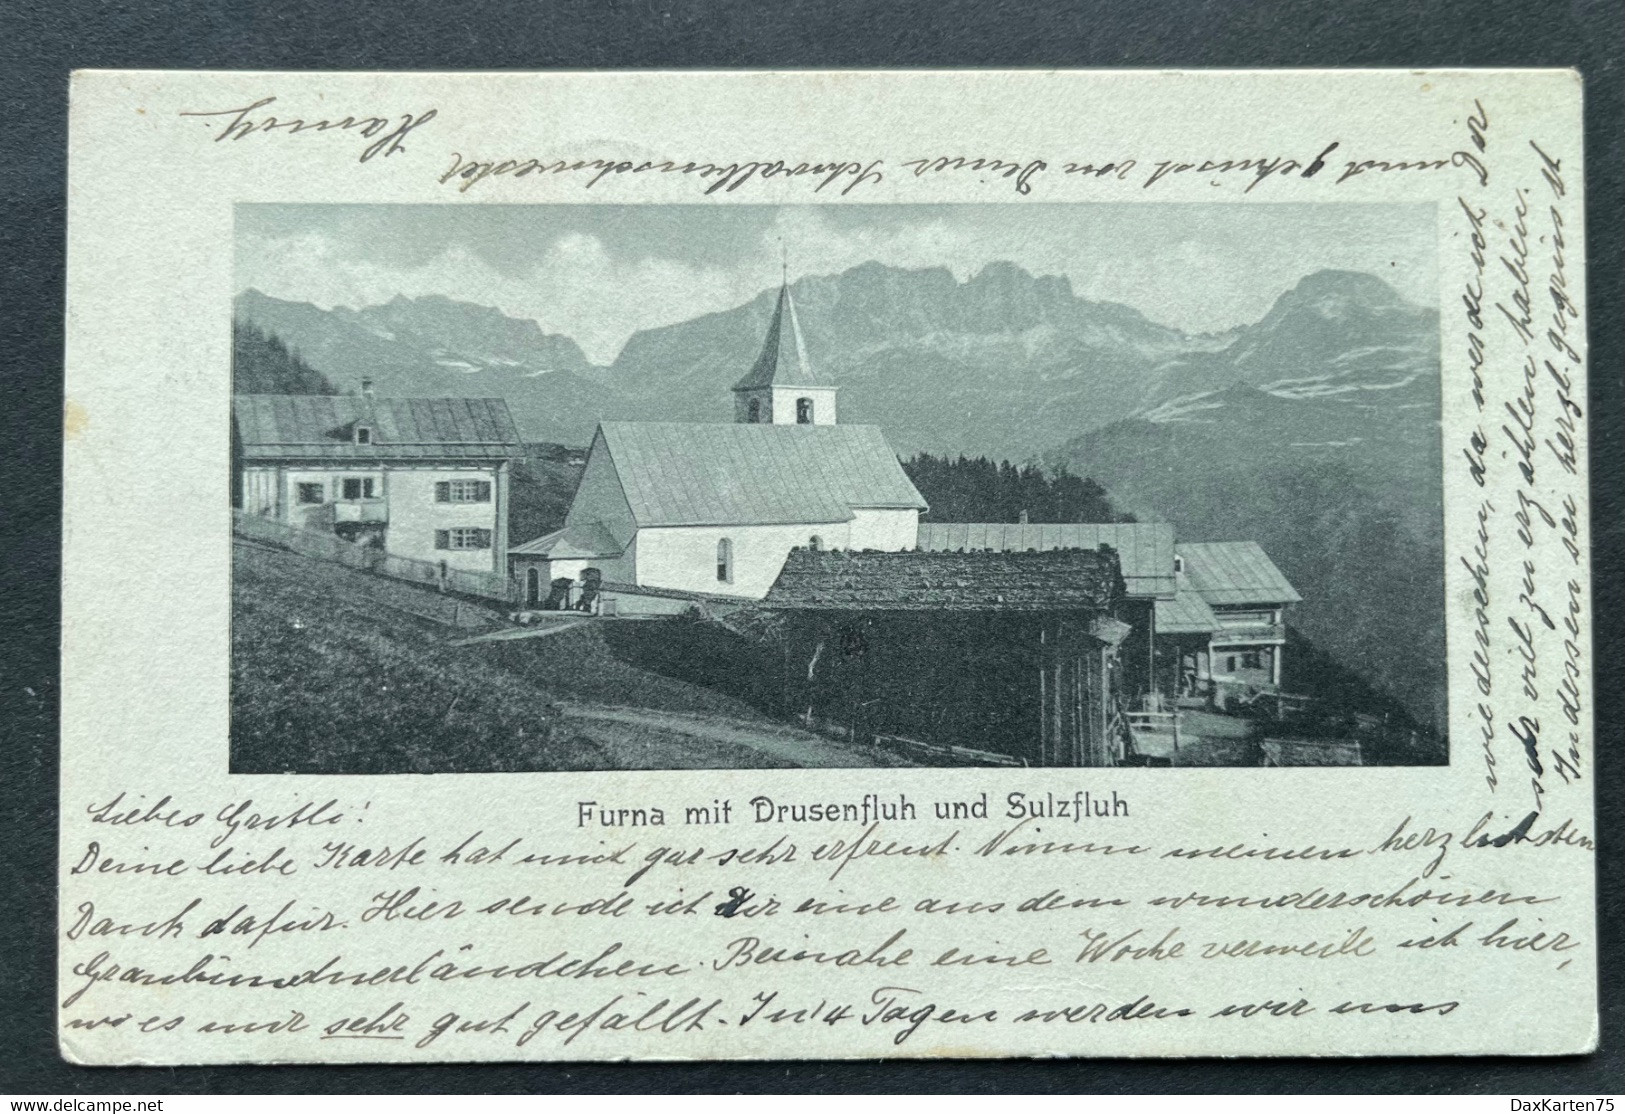 Furna mit Drusenfluh und Sulzfluh
Liebes Gritli!
Deine liebe Karte hat mich gar sehr erfreut. Nimm meinen herzlichsten
Dank dafür. Hier sende ich Dir eine aus dem wunderschönen
Graubündnerländchen. Beinahe eine Woche verweile ich hier,
wo es mir sehr gut gefällt. In 4 Tagen werden wir uns
wiedersehen, da werde ich Dir
sehr viel zu erzählen haben.
Indessen sei herzl. gegrüsst
und geküsst von Deiner Schwalbenschwester
Hanny.
delcampe.net
DaxKarten75